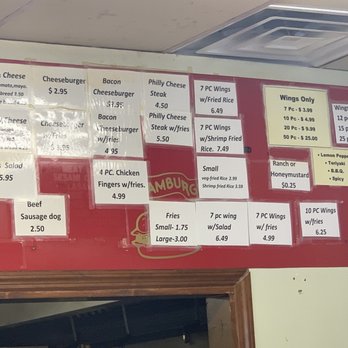 Cheese
Cheeseburger
$ 2.95
Bacon
Cheeseburger
Philly Cheese
Steak
4.50
7 PC Wings
w/Fried Rice
6.49
Wings Only
7 Pc - $ 3.99
10 Pc - $ 4.99
20 Pc - $ 9.99
50 Pc - $ 25.00
Wings
12 p
25 p
Cheese
Cheeseburger
Bacon
Cheeseburger
w/fries
4.95
Philly Cheese
Steak w/fries
5.50
7 PC Wings
w/Shrimp Fried
Rice. 7.49
• Lemon Pepper
• Teriyaki
• B.B.Q.
• Spicy
Salad
5.95
4 PC. Chicken
Fingers w/fries.
4.99
HAMBURG
Small
veg fried Rice 2.99
Shrimp fried Rice 3.59
Ranch or
Honeymustard
$0.25
Beef
Sausage dog
2.50
Fries
Small- 1.75
Large-3.00
7 pc wing
w/Salad
6.49
7 PC Wings
w/ fries
4.99
10 PC Wings
w/fries
6.25